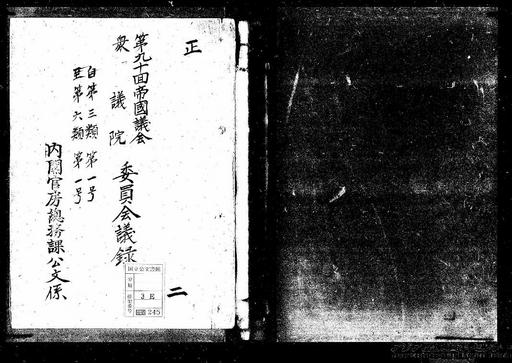 正
第九十回帝國議会
衆議院 委員会議録
自第三類第一号
至第六類第一号
内閣官房總務課公文係
二
国立公文書館
分類
排架番号
3 E
245